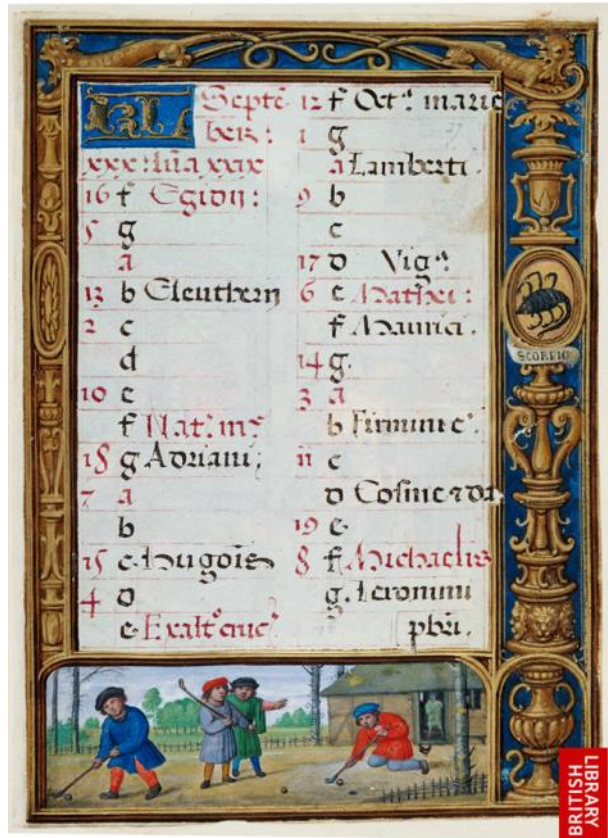 KL Septē
ber:
xxx: lūa xxix
16 f Egidij:
5 g
a
13 b Eleutherij
2 c
d
10 e
f Nat: mᵉ
18 g Adriani:
7 a
b
15 c
4 d
e Exalt° cruc
12 f Octᵃ marie
1 g
a Lamberti.
9 b
c
17 d Vigᵃ
6 e Mathei:
f Maurici.
14 g.
3 a
b Firmini e.
11 c
d Cosme ⁊ da.
19 e.
8 f. Michaelis
g. Ieronimi
pbri.
SCORPIO
BRITISH
LIBRARY